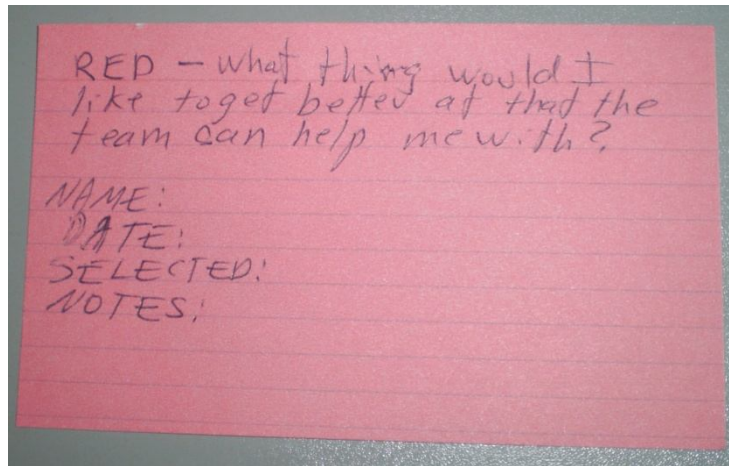 RED - What thing would I
like to get better at that the
team can help me with?
NAME:
DATE:
SELECTED:
NOTES: